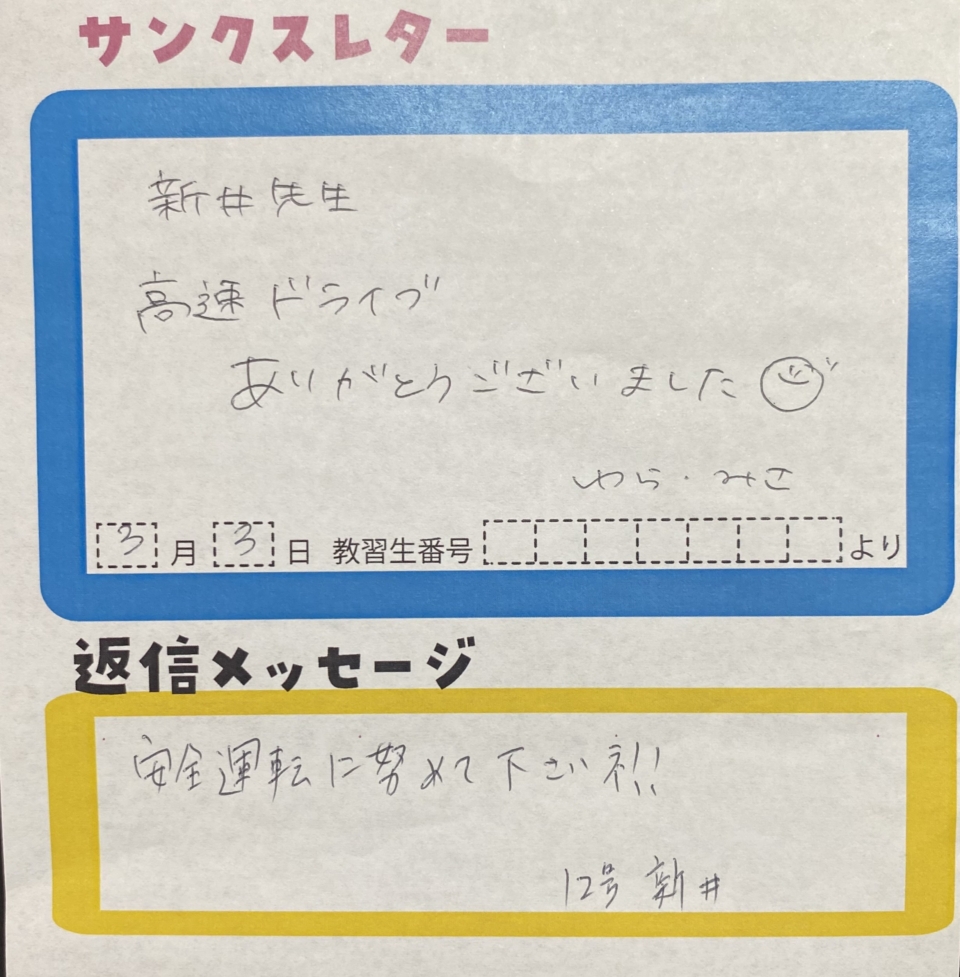 サンクスレター
新井先生
高速ドライブ
ありがとうございました
ゆら・みさ
3月3日 教習生番号 より
返信メッセージ
安全運転に努めて下さいネ!!
12号 新井